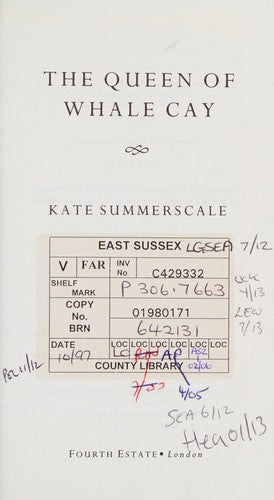 THE QUEEN OF
WHALE CAY
KATE SUMMERSCALE
EAST SUSSEX LGSEA 7/12
V FAR INV No. C429332
SHELF MARK P 306.7663
UCK 4/13
COPY No. 01980171
LEW 7/13
BRN 642131
DATE 10/97 LOC LOC LOC LOC LOC LOC
LC AP
02/06
COUNTY LIBRARY
11/12
4/05
SEA 6/12
Hea 01/13
FOURTH ESTATE • London